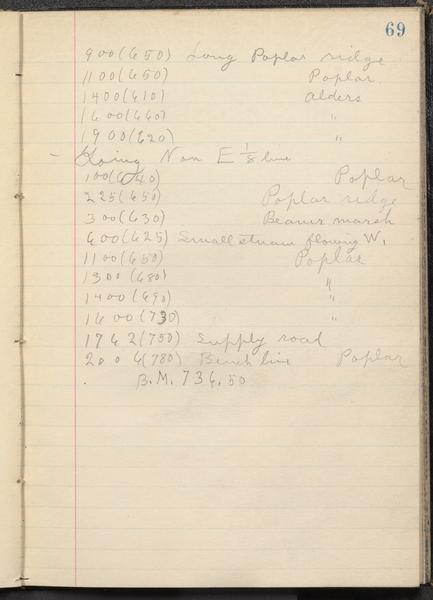 69
900(650) Long Poplar ridge
1100(650) Poplar
1400(610) Alders
1600(660) "
1900(620) "
- Going Non E 1/8 line
100(640) Poplar
225(650) Poplar ridge
300(630) Beaver marsh
600(625) Small stream flowing W.
1100(650) Poplar
1300(680) "
1400(690) "
1600(730) "
1962(750) Supply road
2006(780) Bench line Poplar
. B.M. 736.50